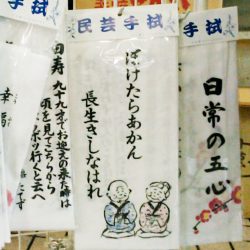 手拭
民芸手拭
手拭
ぼけたらあかん
長生きしなはれ
日常の五心
九十九才でお迎えの来た時は
頃を見てこちらから
ボツボツ行くと云へ